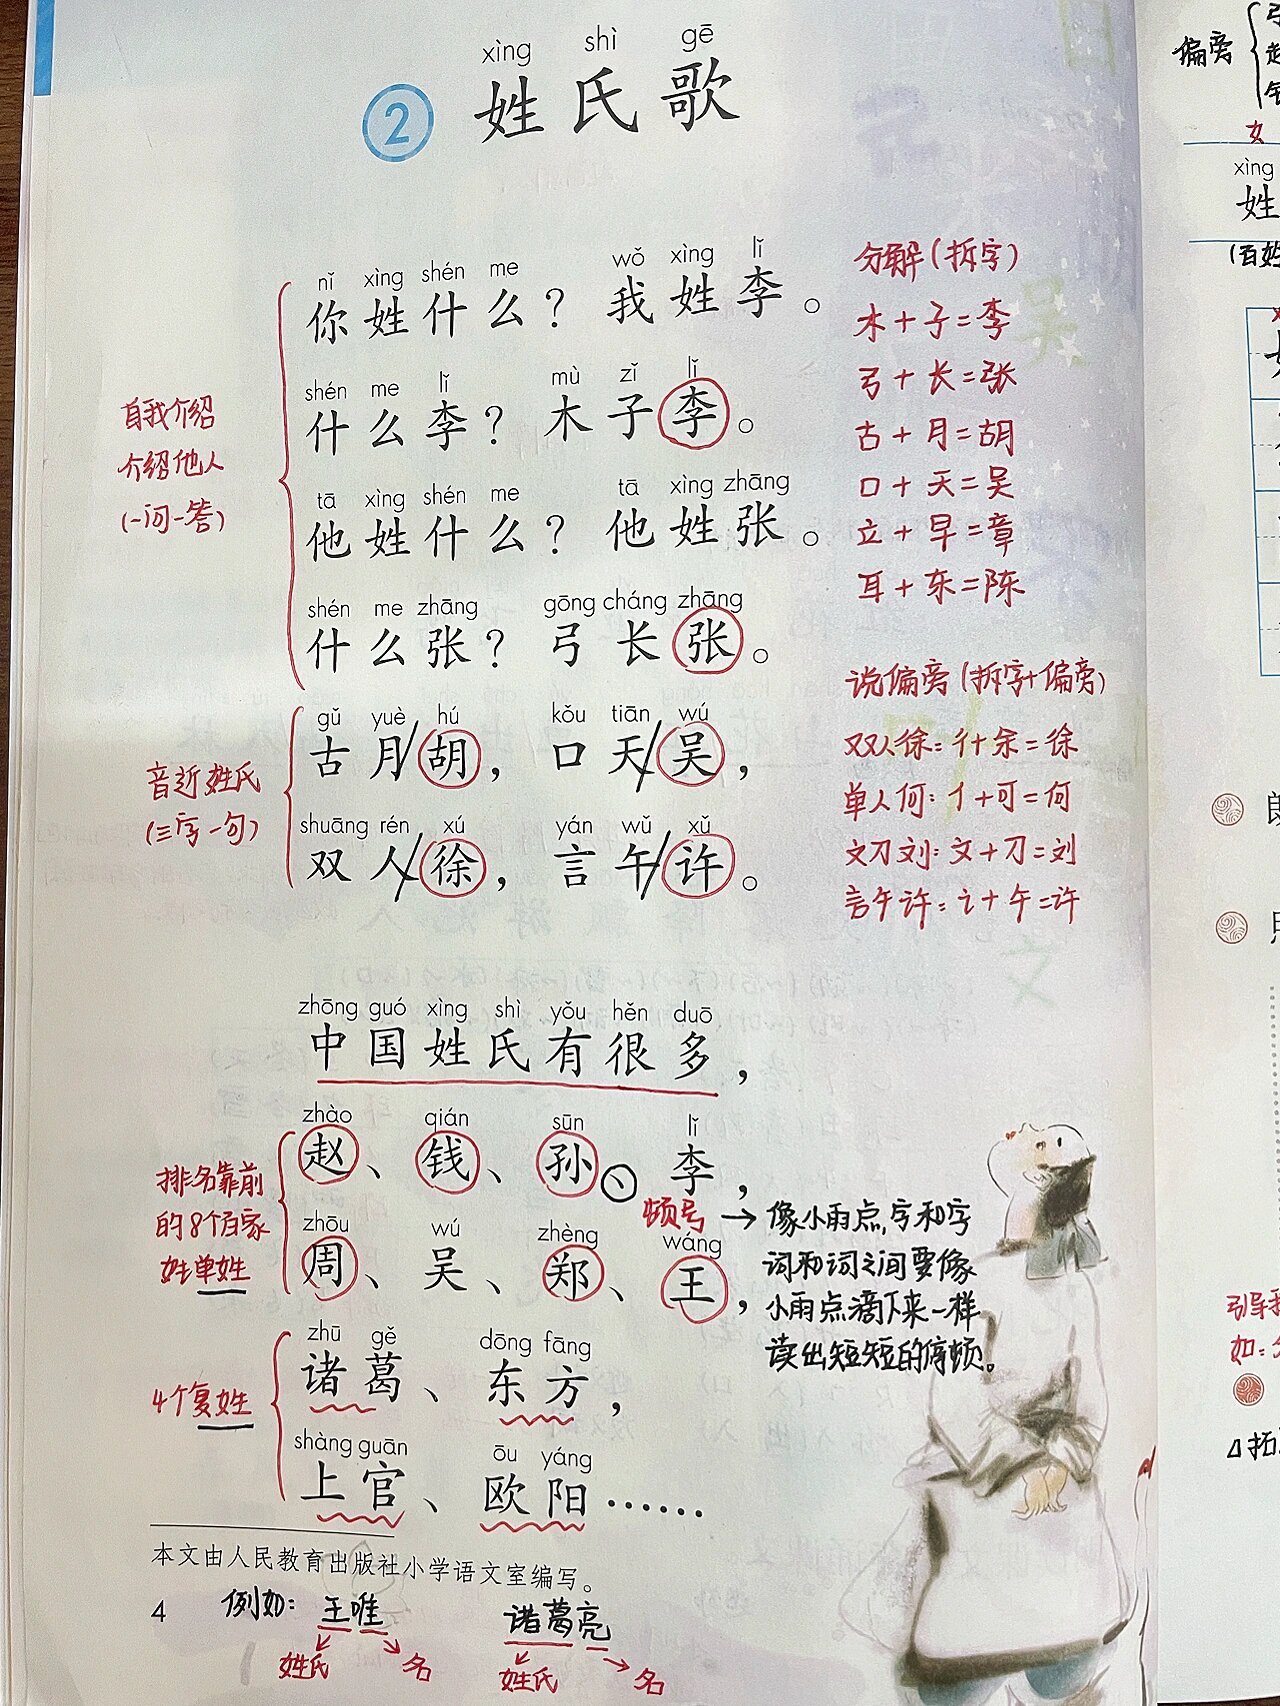 xìng shì gē
② 姓氏歌
nǐ xìng shén me wǒ xìng lǐ
你姓什么？我姓李。
shén me lǐ mù zǐ lǐ
什么李？木子李。
tā xìng shén me tā xìng zhāng
他姓什么？他姓张。
shén me zhāng gōng cháng zhāng
什么张？弓长张。
自我介绍
介绍他人
(一问一答)
gǔ yuè hú kǒu tiān wú
古月/胡，口天/吴，
shuāng rén xú yán wǔ xǔ
双人/徐，言午/许。
音近姓氏
(三字一句)
分解(拆字)
木+子=李
弓+长=张
古+月=胡
口+天=吴
立+早=章
耳+东=陈
说偏旁(拆字+偏旁)
双人徐：彳+余=徐
单人何：亻+可=何
文刀刘：文+刀=刘
言午许：讠+午=许
zhōng guó xìng shì yǒu hěn duō
中国姓氏有很多，
zhào qián sūn lǐ
赵、钱、孙、李，
zhōu wú zhèng wáng
周、吴、郑、王，
排名靠前
的8个百家
姓单姓
顿号→像小雨点，字和字
词和词之间要像
小雨点滴下来一样
读出短短的停顿。
zhū gě dōng fāng
诸葛、东方，
shàng guān ōu yáng
上官、欧阳……
4个复姓
本文由人民教育出版社小学语文室编写。
4
例如：王唯 诸葛亮
姓氏 名 姓氏 名
偏旁
女
xìng
姓
(百姓
如：